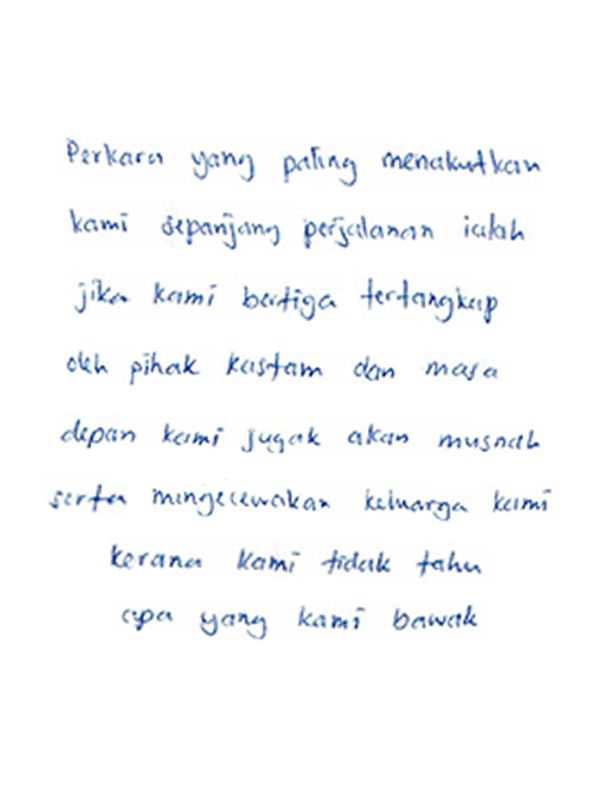 Perkara yang paling menakutkan
kami sepanjang perjalanan ialah
jika kami bertiga tertangkap
oleh pihak kastam dan masa
depan kami jugak akan musnah
serta mengecewakan keluarga kami
kerana kami tidak tahu
apa yang kami bawak